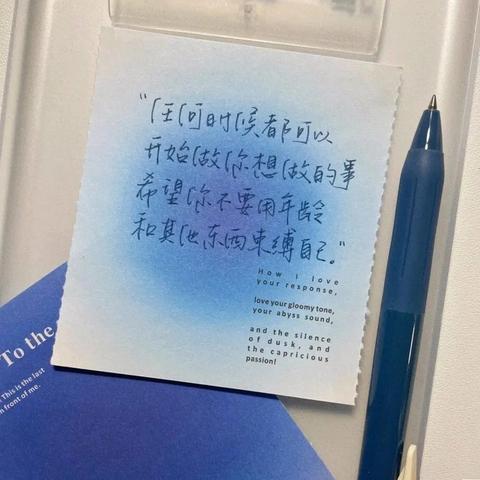 “任何时候都可以
开始做你想做的事
希望你不要用年龄
和其他东西束缚自己。”
How i love
your response,
love your gloomy tone,
your abyss sound,
and the silence
of dusk, and
the capricious
passion!
To the
This is the last
front of me.